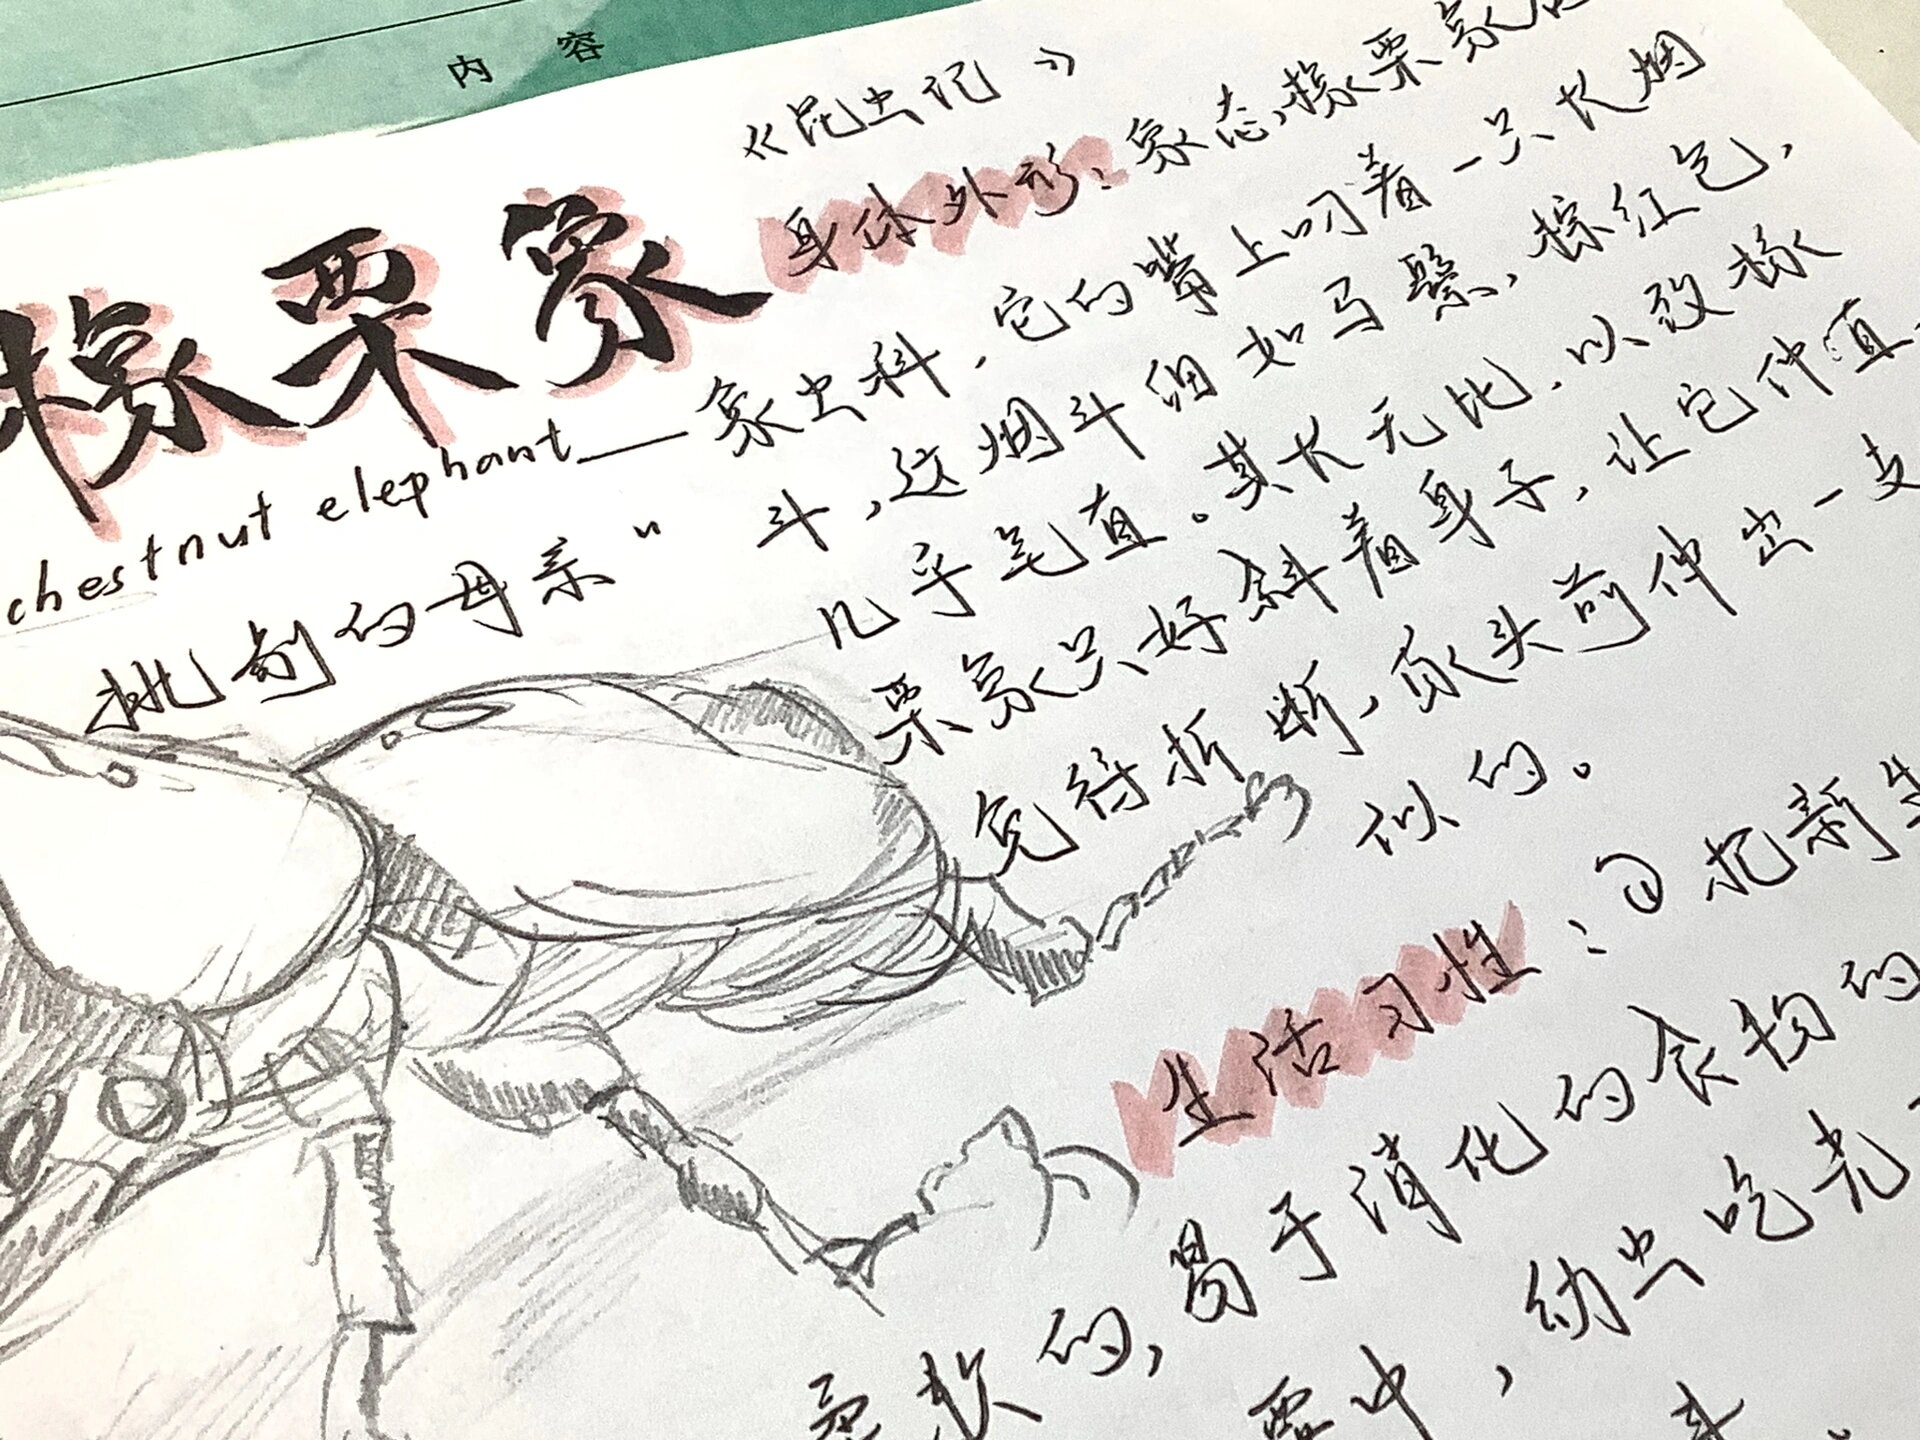 内 容
《昆虫记》
橡栗象
chestnut elephant——象虫科
挑剔的母亲"
身体外形：象态,橡栗象
,它的嘴上叼着一只长烟
斗,这烟斗细如马鬃,棕红色,
几乎笔直。其长无比,以致橡
栗象只好斜着身子,让它伸直
免得折断,像头前伸出一支
似的。
生活习性：①把新生
柔软的,易于消化的食物的
栗中,幼虫吃光